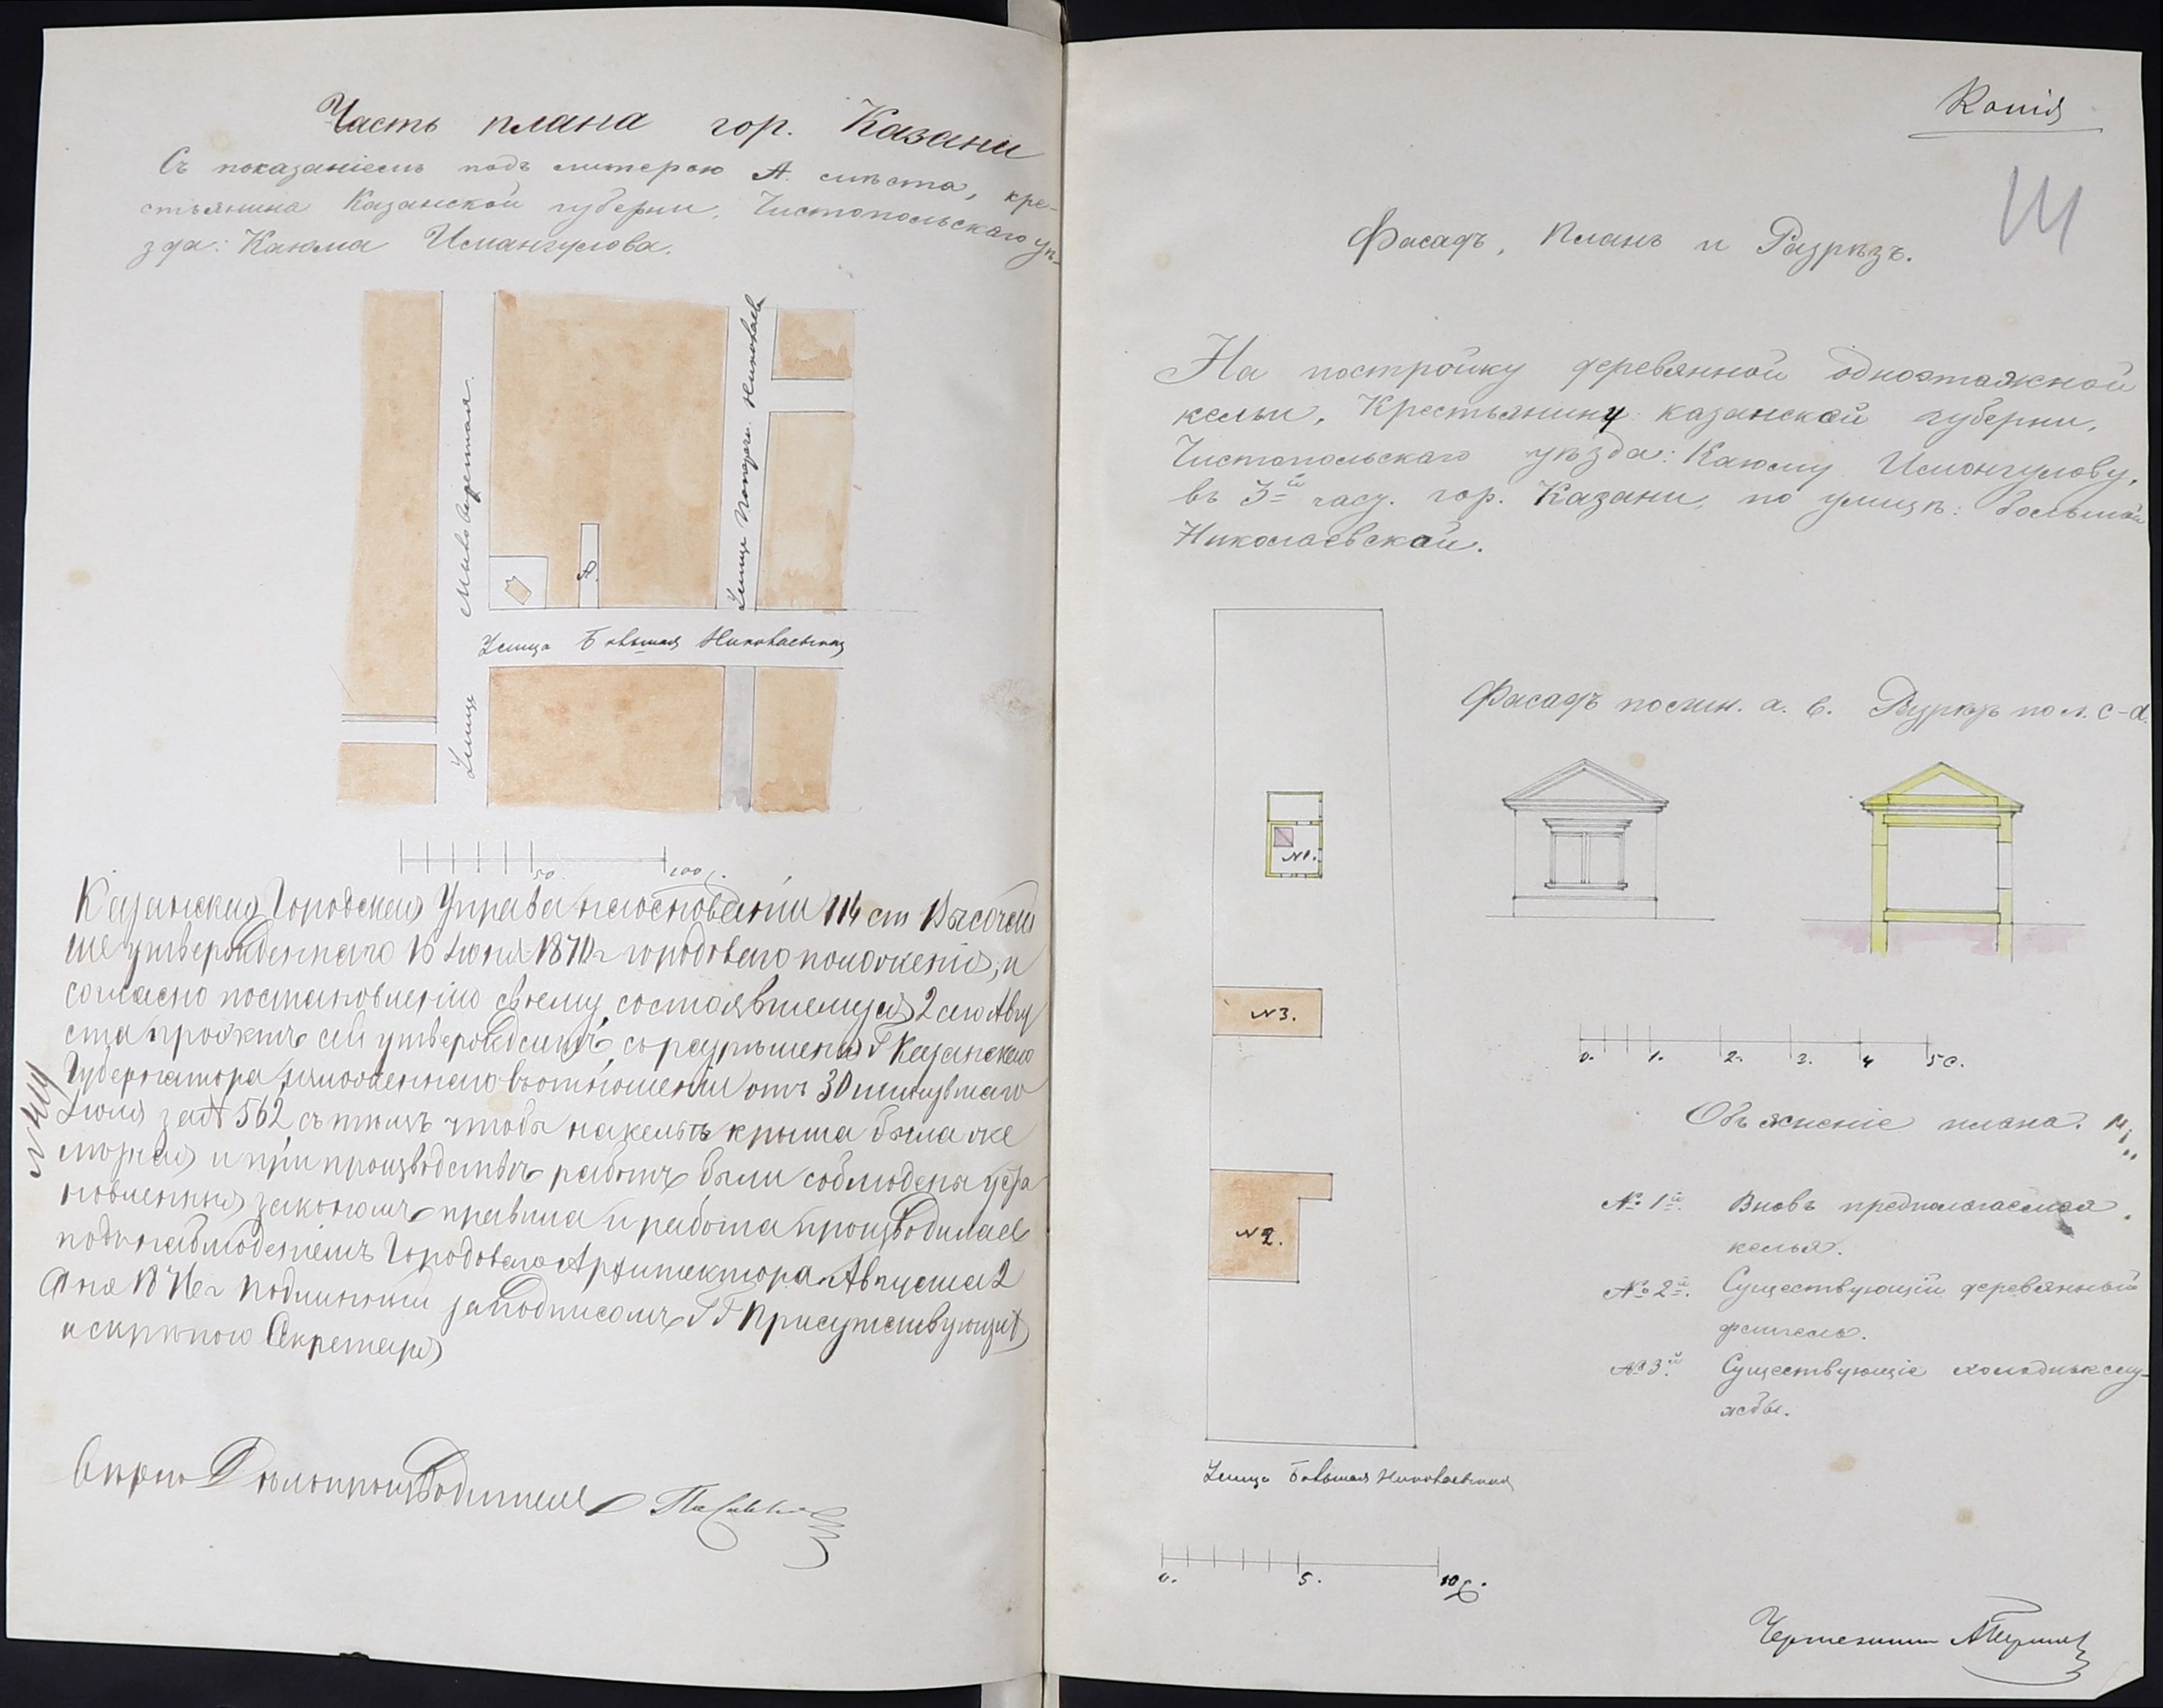 Часть плана гор. Казани
Съ показаніемъ подъ литерою А. мѣста, кре-
стьянина Казанской губерни, Чистопольскаго уѣ-
зда: Каюма Исмангулова.
Улица Поперечн. Николаев
Мало варетная.
А.
Улица Большая Николаевская
Улица
50. 100 с.
Казанская Городская Управа на основаніи 114 ст Высочай
ше утвержденнаго 16 Іюня 1870 г городового положенія, и
согласно постановленію своему, состоявшемуся 2 сего Авгу
ста проэктъ сей утверждаетъ, съ разрешенія Г Казанскаго
Губернатора, изложеннаго въ отношеніи отъ 30 минувшаго
Іюля за № 562 съ тѣмъ чтобы на кельѣ крыша была же
лѣзная и при производствѣ работъ были соблюдены уста
новленныя закономъ правила и работа производилась
подъ наблюденіемъ Городового Архитектора. Августа 2
дня 1876 г Подлинный за подписомъ Г Г Присутствующихъ
и скрѣпою Секретаря
Скрѣпо Дѣлопроизводителя
Копія
Фасадъ, Планъ и Разрѣзъ.
На постройку деревянной одноэтажной
кельи, Крестьянину казанской губерни,
Чистопольскаго уѣзда: Каюму Исмонгулову,
въ 3й часу. гор. Казани, по улицѣ: большой
Николаевской.
Фасадъ по лин. а. в. Разрѣзъ по л. с-d.
№1.
№3.
0. 1. 2. 3. 4 5 с.
Объясненіе плана.
№2.
№ 1й. Вновь предполагаемая
келья.
№ 2й. Существующій деревянный
флигель.
№ 3й. Существующіе холодныя слу-
жбы.
Улица Большая Николаевская
0. 5. 10 с.
Чертежникъ